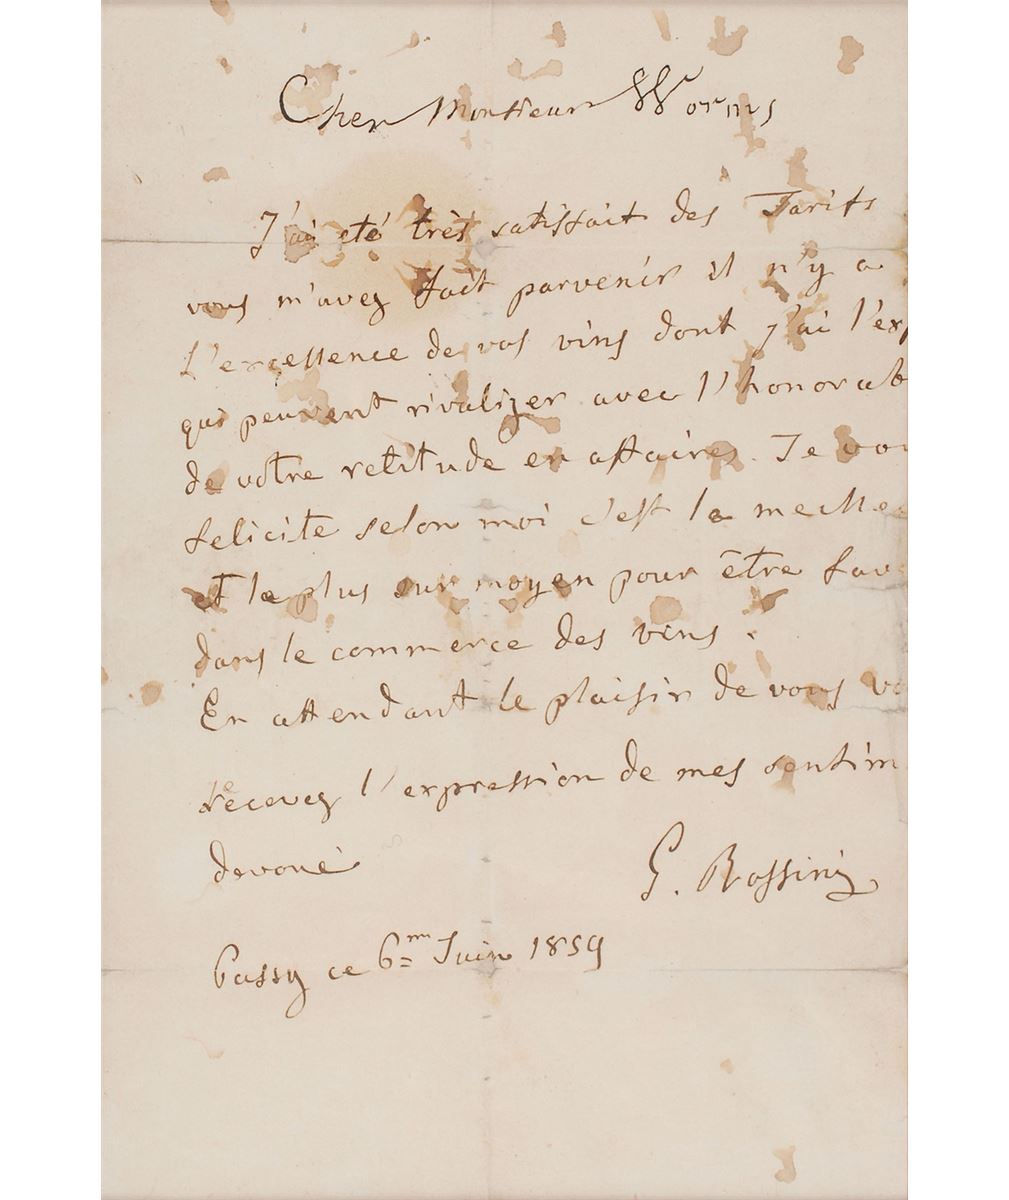 Cher Monsieur Worms
J'ai eté très satisfait des Tarifs
vous m'avez fait parvenir il n'y a
L'excellence de vos vins dont j'ai l'exp
qui peuvent rivalizer avec l'honorab
de votre retitude en affaires. Je vou
felicite selon moi c'est la meille
et le plus sur moyen pour être fav
dans le commerce des vins.
En attendant le plaisir de vous vo
recevez l'expression de mes sentim
devoué
G. Rossini
Passy ce 6me Juin 1859